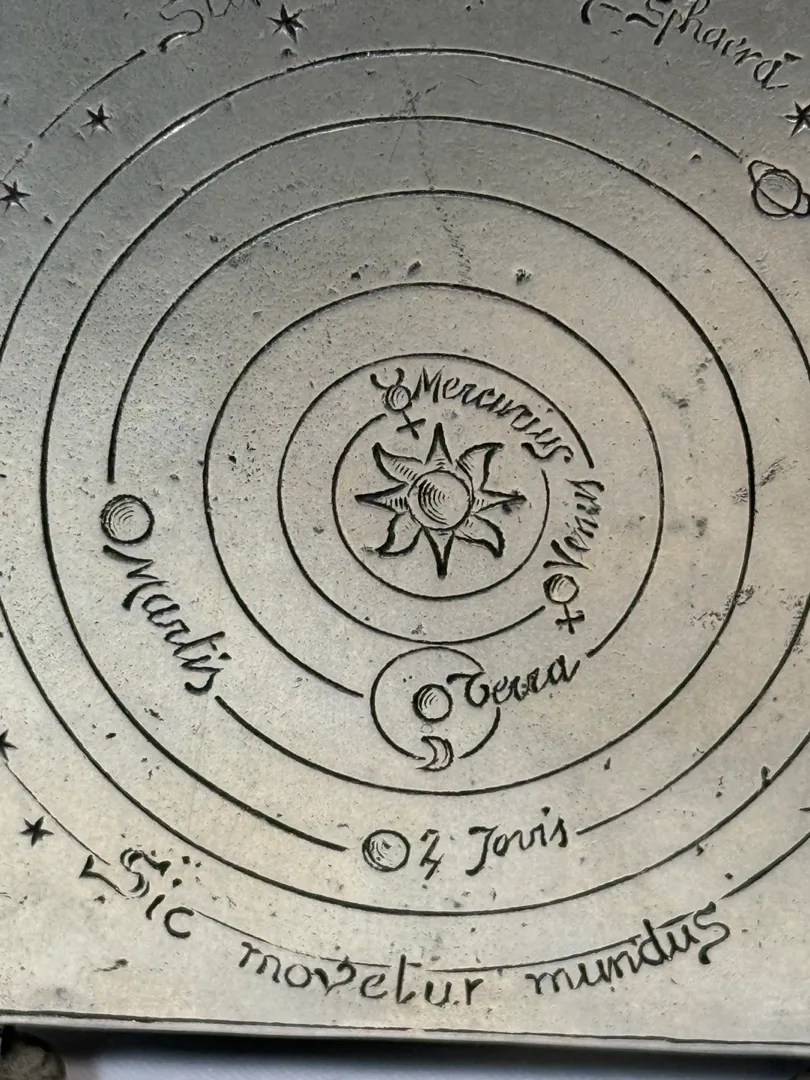 Sphaera
Mercurius
Venus
Martis
Terra
♃ Jovis
Sic movetur mundus